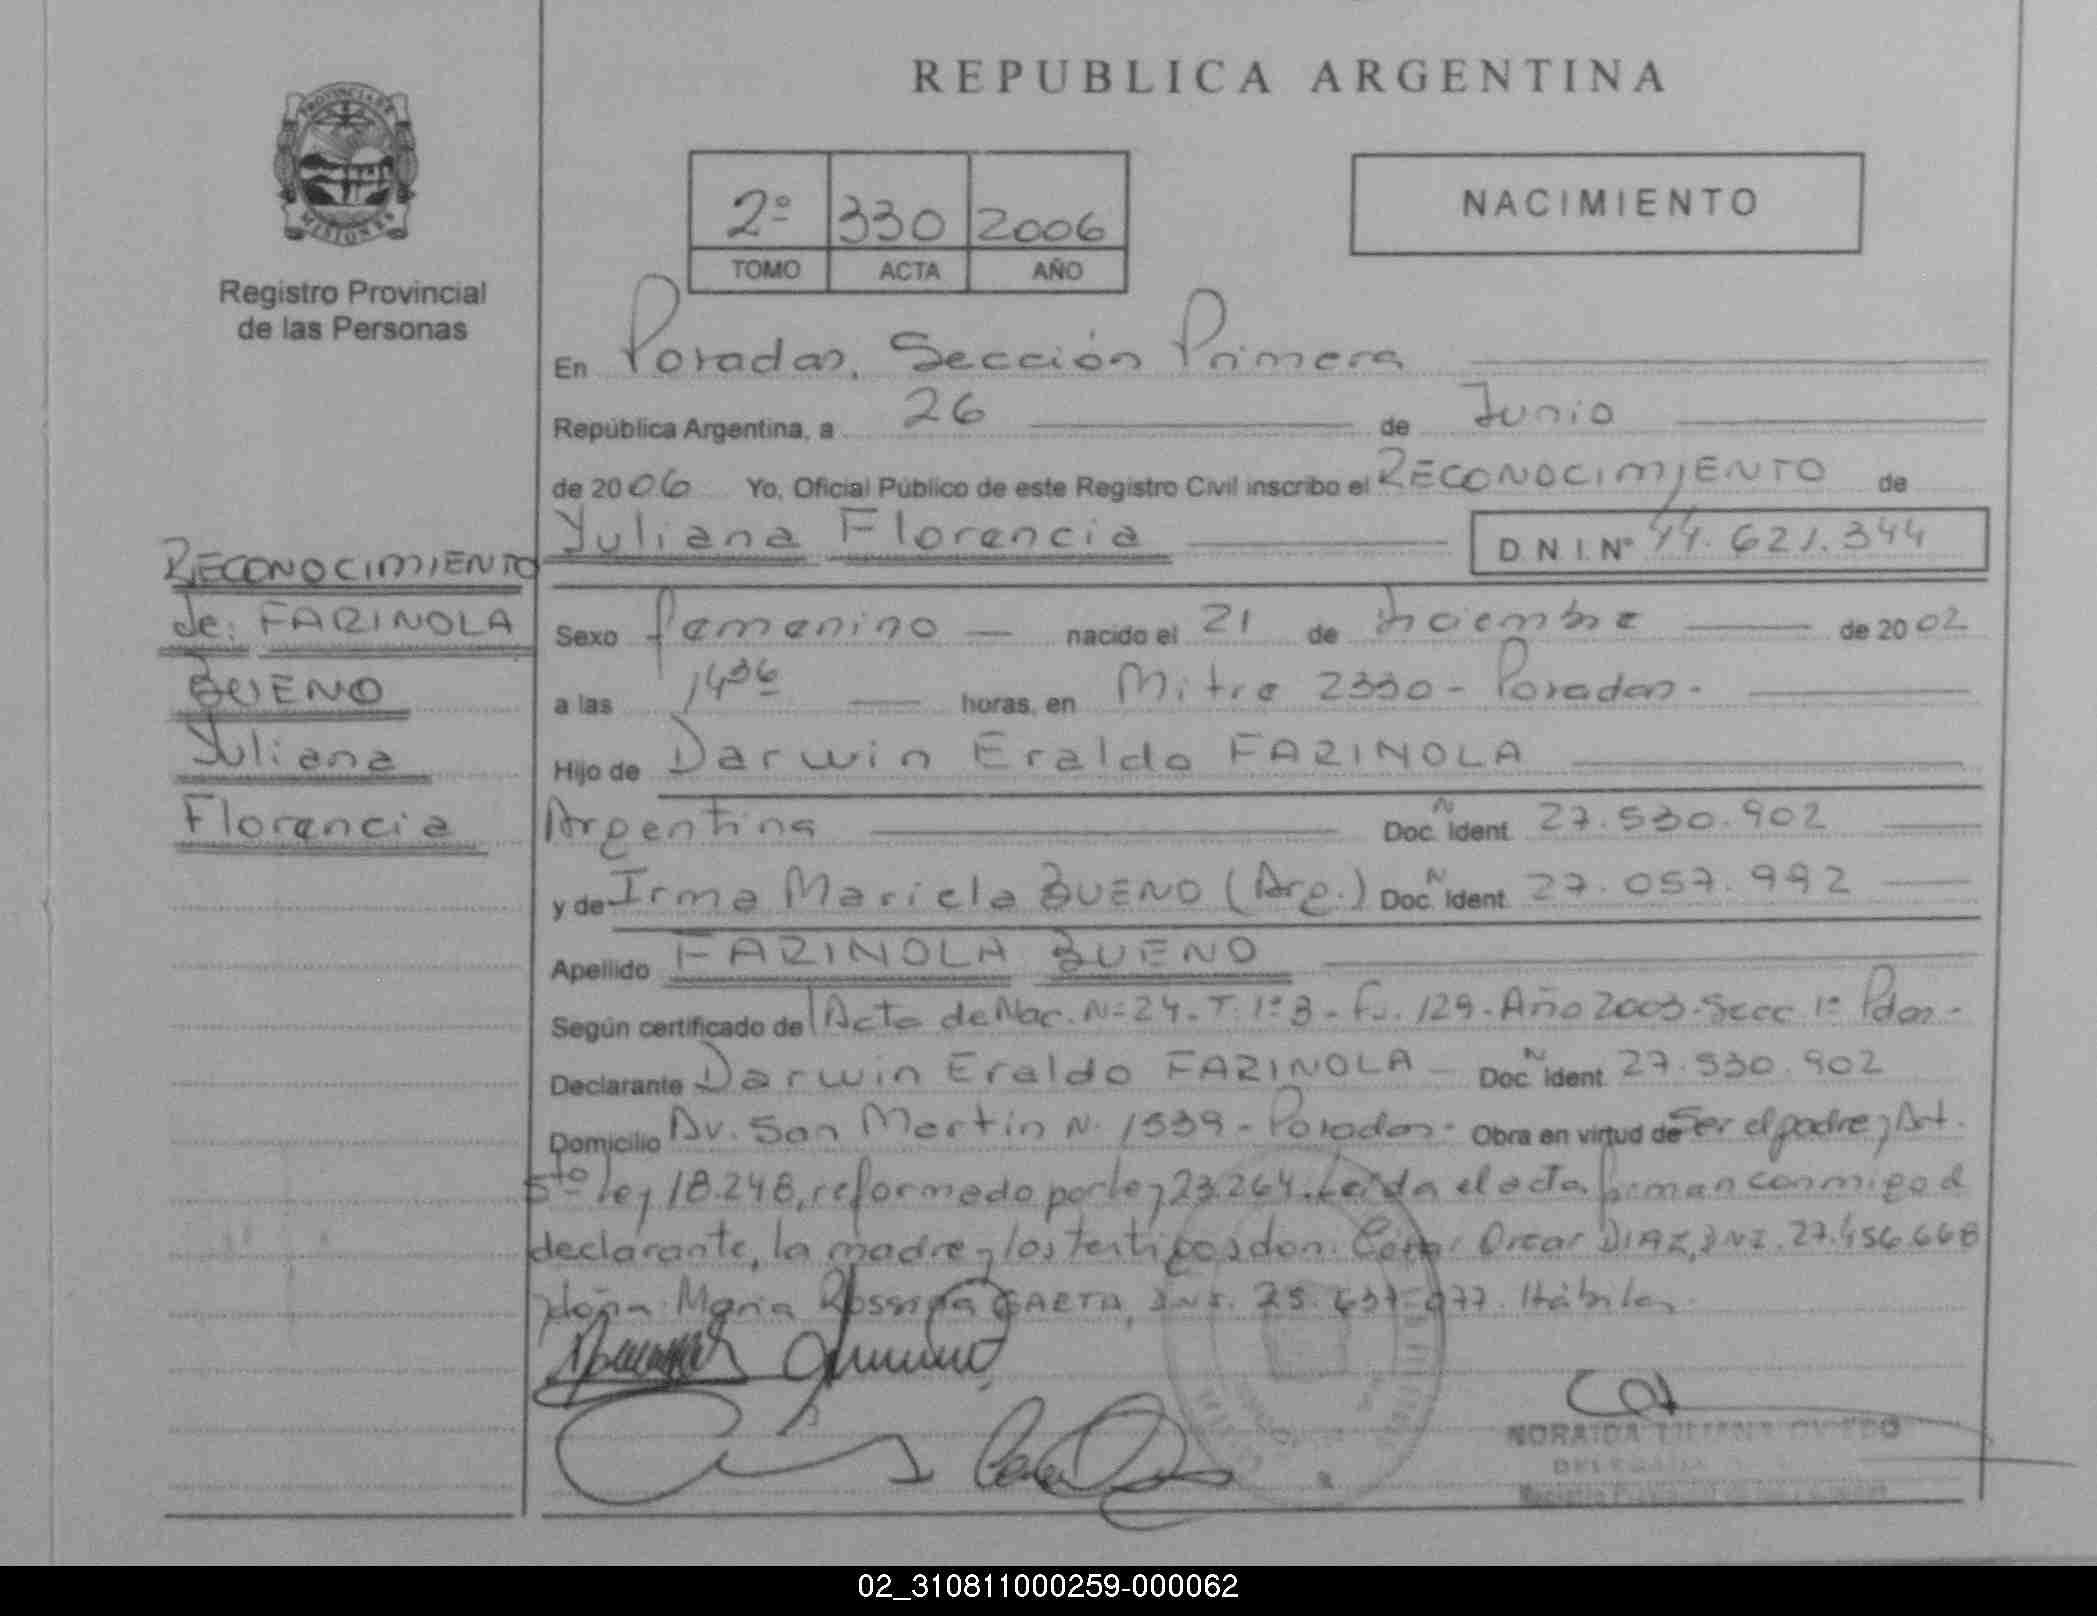 REPUBLICA ARGENTINA
PROVINCIA DE
MISIONES
Registro Provincial
de las Personas
2º 330 2006
TOMO ACTA AÑO
NACIMIENTO
En Posadas, Sección Primera
República Argentina, a 26 de Junio
de 2006 Yo, Oficial Público de este Registro Civil inscribo el RECONOCIMIENTO de
Yuliana Florencia D.N.I. Nº 44.621.344
RECONOCIMIENTO
de: FARINOLA
BUENO
Yuliana
Florencia
Sexo femenino nacido el 21 de Diciembre de 2002
a las 1436 horas, en Mitre 2330 - Posadas -
Hijo de Darwin Eraldo FARINOLA
Argentina Doc. Ident. N 27.530.902
y de Irma Mariela BUENO (Arg.) Doc. Ident. N 27.057.992
Apellido FARINOLA BUENO
Según certificado de Acta de Nac. Nº 24 - T. 1º B - Fº. 129 - Año 2003 - Secc 1º Pdas -
Declarante Darwin Eraldo FARINOLA - Doc. Ident. N 27.530.902
Domicilio Av. San Martin N. 1539 - Posadas - Obra en virtud de Ser el padre y Art.
5to ley 18.248, reformado por ley 23.264. Leída el acta firman conmigo el
declarante, la madre y los testigos don: Oscar DIAZ, DNI. 27.456.668
y doña: Maria GAETA, DNI. 25. Hábiles
NORAIDA LILIANA OVIEDO
DELEGADA
02_310811000259-000062